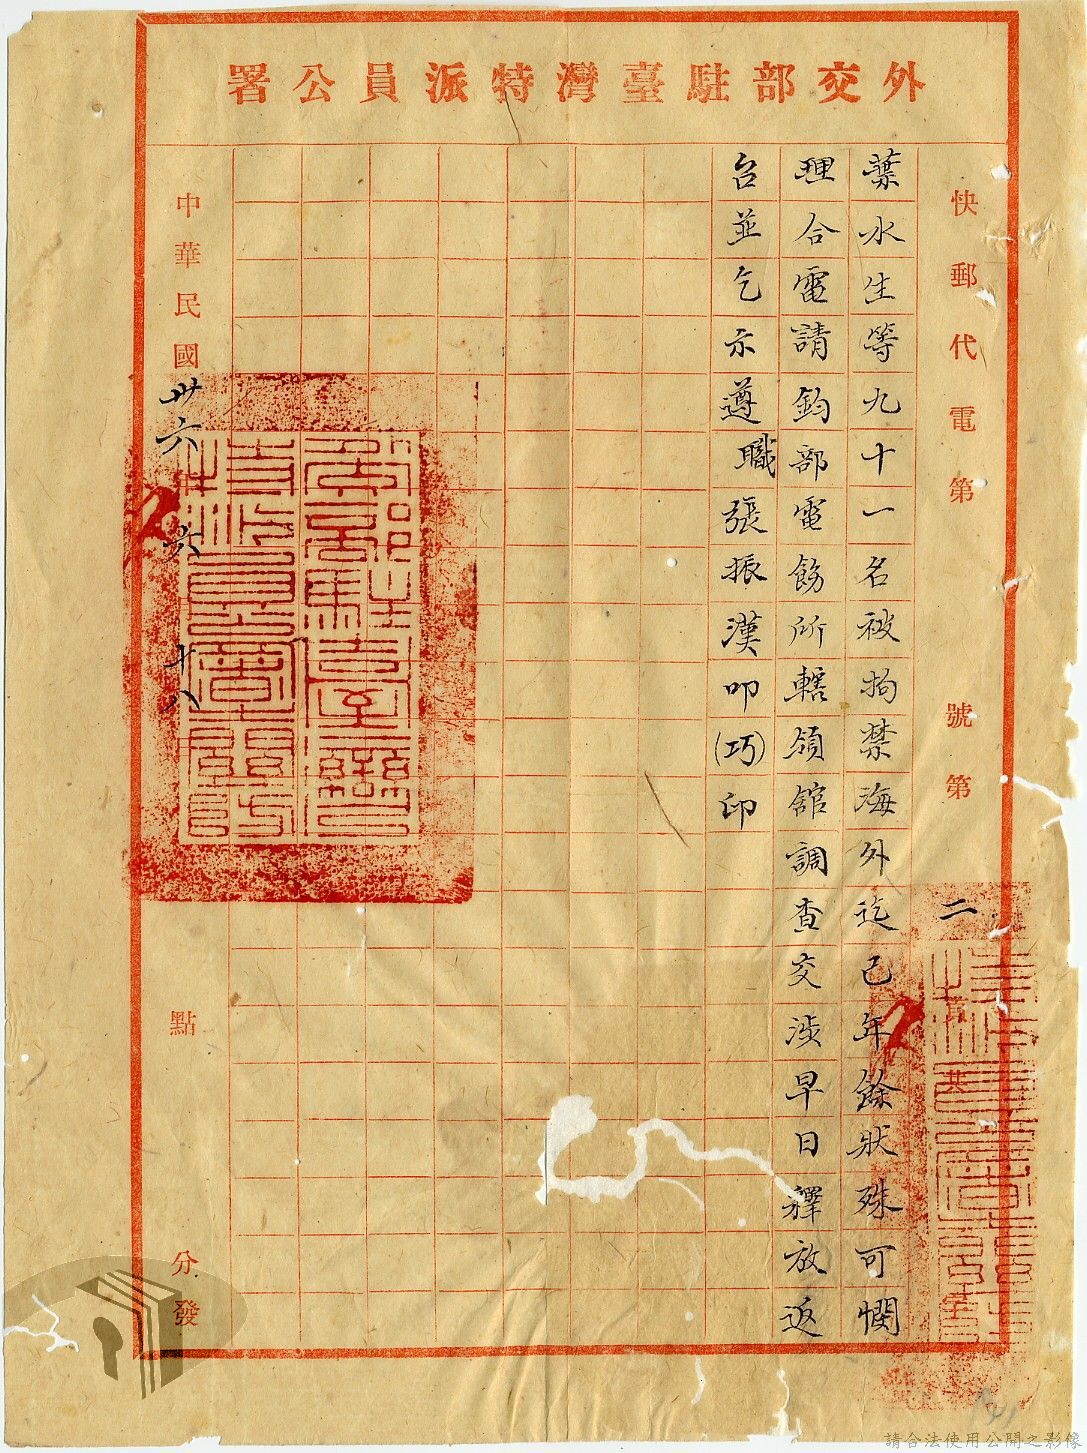 外交部駐臺灣特派員公署
快郵代電第 號第二頁共 字
葉水生等九十一名被拘禁海外迄已年餘狀殊可憫
理合電請鈞部電飭所轄領館調查交涉早日釋放返
台並乞示遵職張振漢叩(巧)印
中華民國卅六年六月十八日 點 分發
外交部駐臺灣
特派員公署關防
請合法使用公開之影像